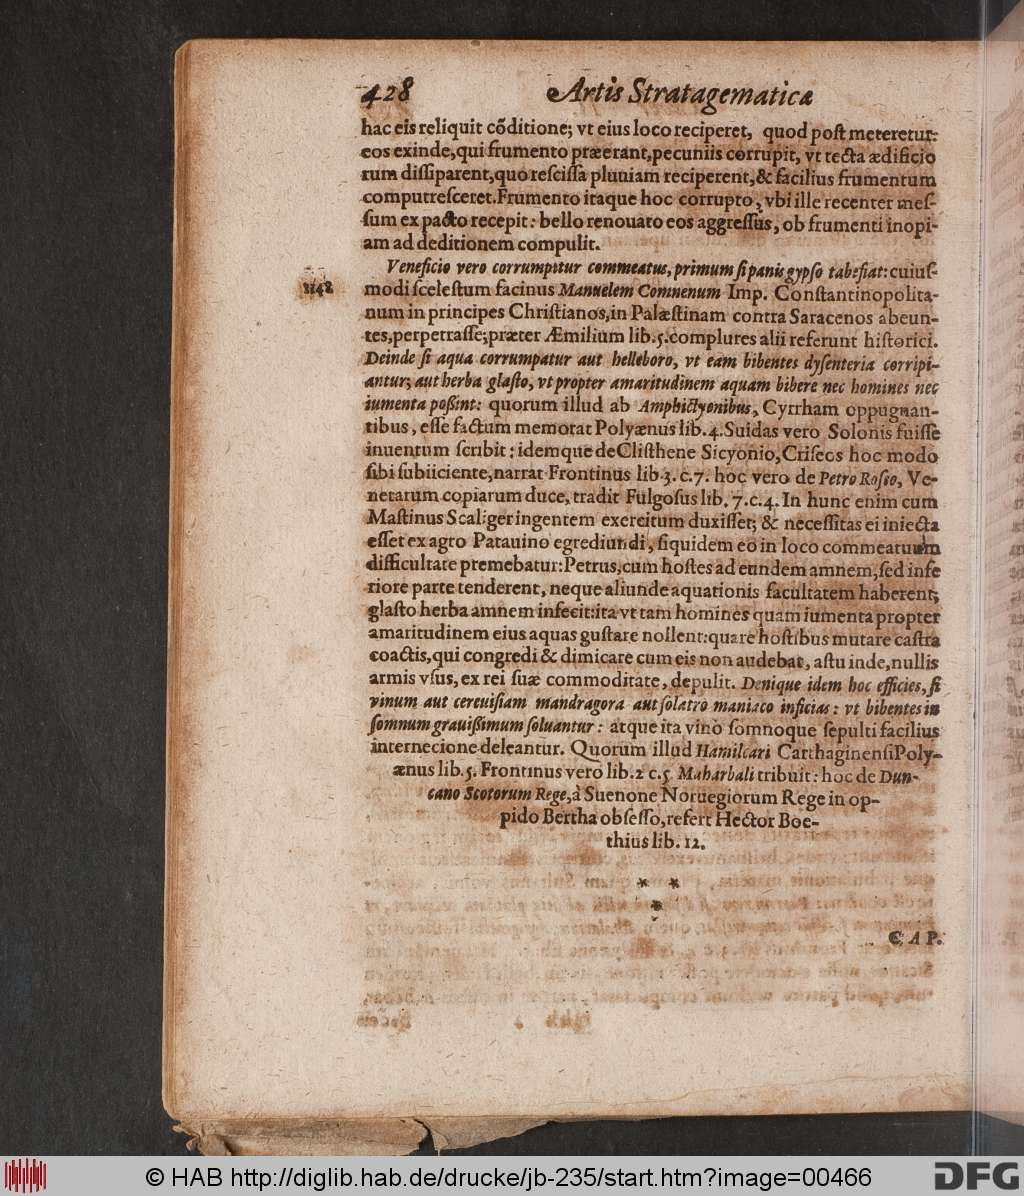 428 Artis Stratagematicæ
hac eis reliquit cõditione; vt eius loco reciperet, quod post meteretur:
eos exinde, qui frumento præerant, pecuniis corrupit, vt tecta ædificio
rum dissiparent, quo rescissa pluuiam reciperent, & facilius frumentum
computresceret. Frumento itaque hoc corrupto, vbi ille recenter mes-
sum ex pacto recepit: bello renouato eos aggressus, ob frumenti inopi-
am ad deditionem compulit.
Veneficio vero corrumpitur commeatus, primum si panis gypso tabefiat: cuius-
1148
modi scelestum facinus Manuelem Comnenum Imp. Constantinopolita-
num in principes Christianos, in Palæstinam contra Saracenos abeun-
tes, perpetrasse; præter Æmilium lib. 5. complures alii referunt historici.
Deinde si aqua corrumpatur aut helleboro, vt eam bibentes dysenteria corripi-
antur; aut herba glasto, vt propter amaritudinem aquam bibere nec homines nec
iumenta possint: quorum illud ab Amphictyonibus, Cyrrham oppugnan-
tibus, esse factum memorat Polyænus lib. 4. Suidas vero Solonis fuisse
inuentum scribit: idemque de Clisthene Sicyonio, Criseos hoc modo
sibi subiiciente, narrat Frontinus lib. 3. c. 7. hoc vero de Petro Rosio, Ve-
netarum copiarum duce, tradit Fulgosus lib. 7. c. 4. In hunc enim cum
Mastinus Scaliger ingentem exercitum duxisset; & necessitas ei iniecta
esset ex agro Patauino egrediundi, siquidem eo in loco commeatuum
difficultate premebatur: Petrus, cum hostes ad eundem amnem, sed infe
riore parte tenderent, neque aliunde aquationis facultatem haberent;
glasto herba amnem infecit: ita vt tam homines quam iumenta propter
amaritudinem eius aquas gustare nollent: quare hostibus mutare castra
coactis, qui congredi & dimicare cum eis non audebat, astu inde, nullis
armis vsus, ex rei suæ commoditate, depulit. Denique idem hoc efficies, si
vinum aut cereuisiam mandragora aut solatro maniaco inficias: vt bibentes in
somnum grauissimum soluantur: atque ita vino somnoque sepulti facilius
internecione deleantur. Quorum illud Hamilcari Carthaginensi Poly-
ænus lib. 5. Frontinus vero lib. 2 c. 5. Maharbali tribuit: hoc de Dun-
cano Scotorum Rege, à Suenone Noruegiorum Rege in op-
pido Bertha obsesso, refert Hector Boe-
thius lib. 12.
* *
*
CAP.
© HAB http://diglib.hab.de/drucke/jb-235/start.htm?image=00466
DFG